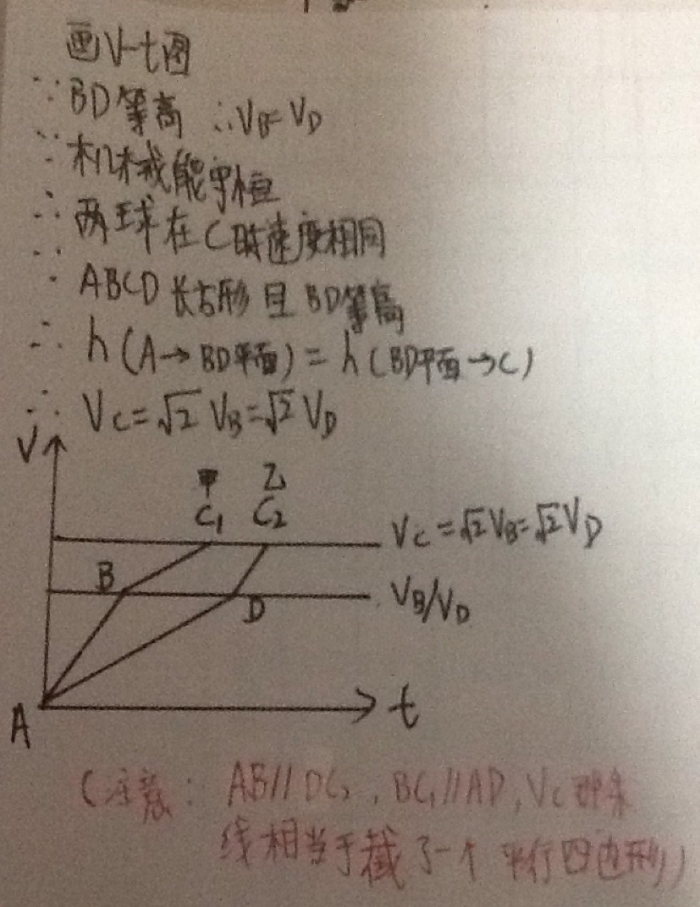 画V-t图
∵BD等高 ∴VB=VD
∵机械能守恒
∴两球在C时速度相同
∵ABCD长方形且BD等高
∴h(A→BD平面)=h(BD平面→C)
∴VC=√2VB=√2VD
V
甲 乙
C1 C2
VC=√2VB=√2VD
B
D
VB/VD
A
t
(注意:AB//DC2,BC1//AD,VC那条
线相当于截了一个平行四边形)